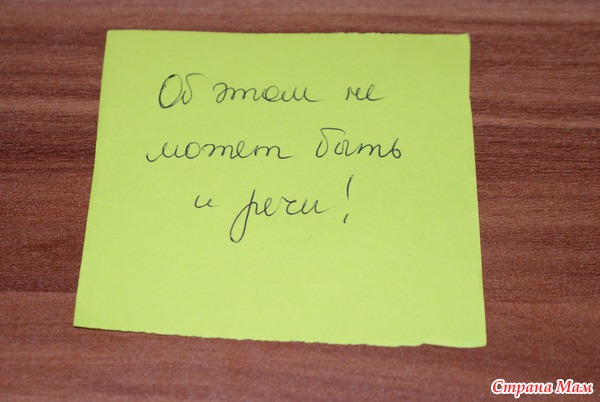 Об этом не
может быть
и речи!
Страна Мам